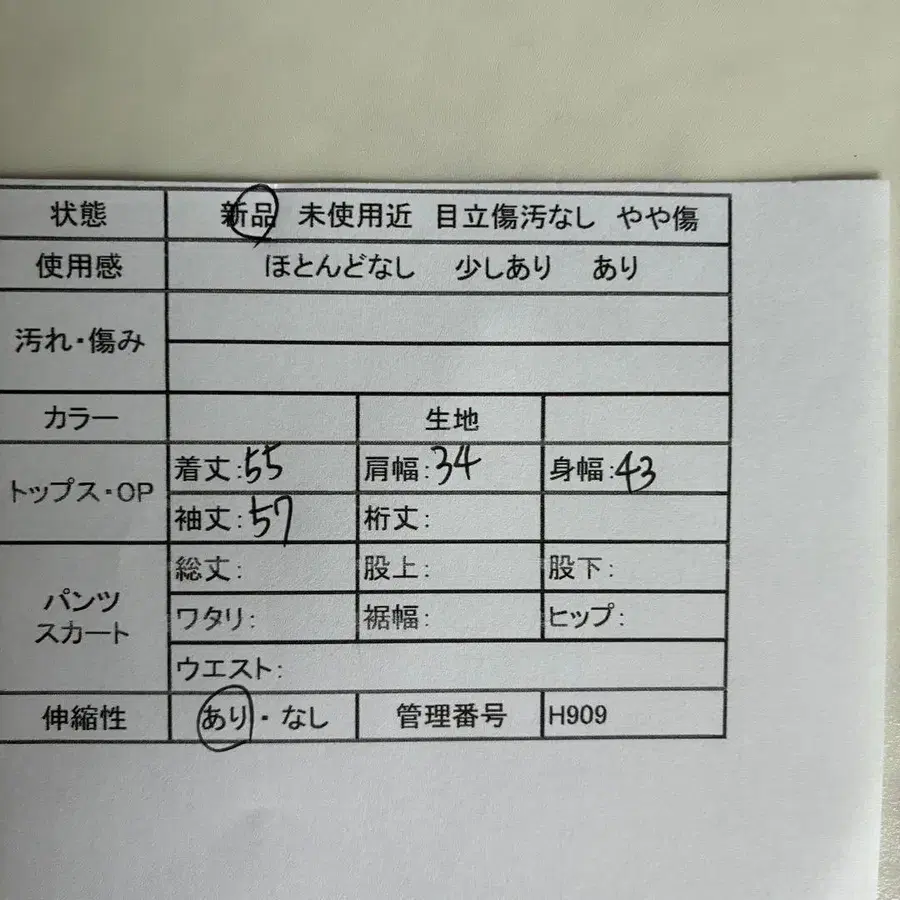 状態 新品 未使用近 目立傷汚なし やや傷
使用感 ほとんどなし 少しあり あり
汚れ・傷み
カラー 生地
トップス・OP 着丈:55 肩幅:34 身幅:43
袖丈:57 裄丈:
パンツ スカート 総丈: 股上: 股下:
ワタリ: 裾幅: ヒップ:
ウエスト:
伸縮性 あり・なし 管理番号 H909